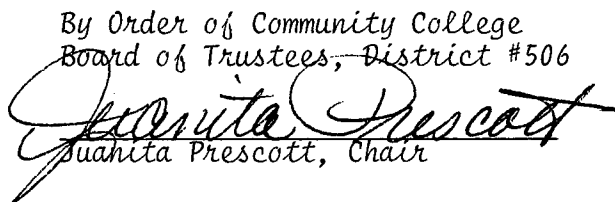 By Order of Community College
Board of Trustees, District #506
Juanita Prescott
Juanita Prescott, Chair